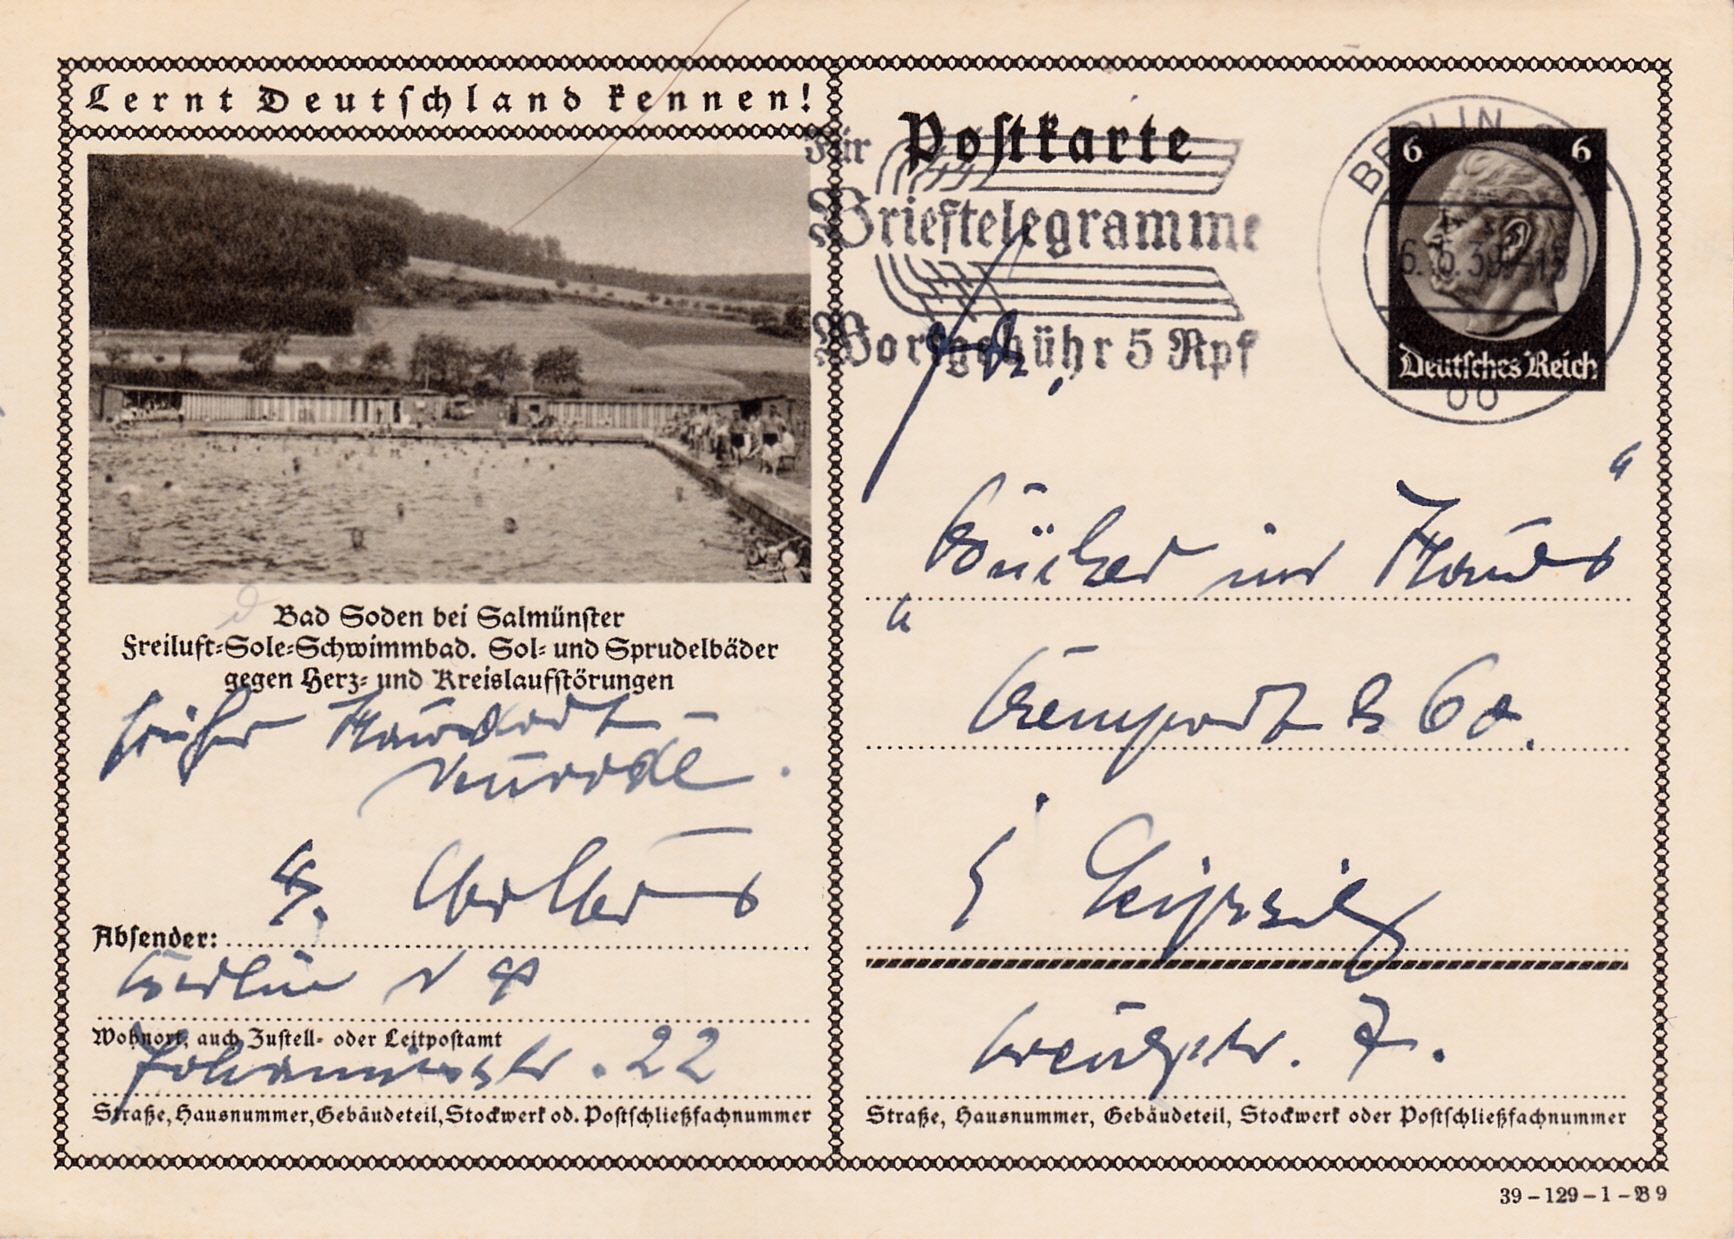 Lernt Deutschland kennen!
Bad Soden bei Salmünster
Freiluft-Sole-Schwimmbad. Sol- und Sprudelbäder
gegen Herz- und Kreislaufstörungen
früher
Absender:
Berlin N
Wohnort, auch Zustell- oder Leitpostamt
Johannisstr. 22
Straße, Hausnummer, Gebäudeteil, Stockwerk od. Postschließfachnummer
Postkarte
Für
Brieftelegramme
Wortgebühr 5 Rpf
BERLIN
6 6
Deutsches Reich
"Bücher im Haus"
& Co.
Leipzig
Kreuzstr. 7.
Straße, Hausnummer, Gebäudeteil, Stockwerk oder Postschließfachnummer
39-129-1-B9